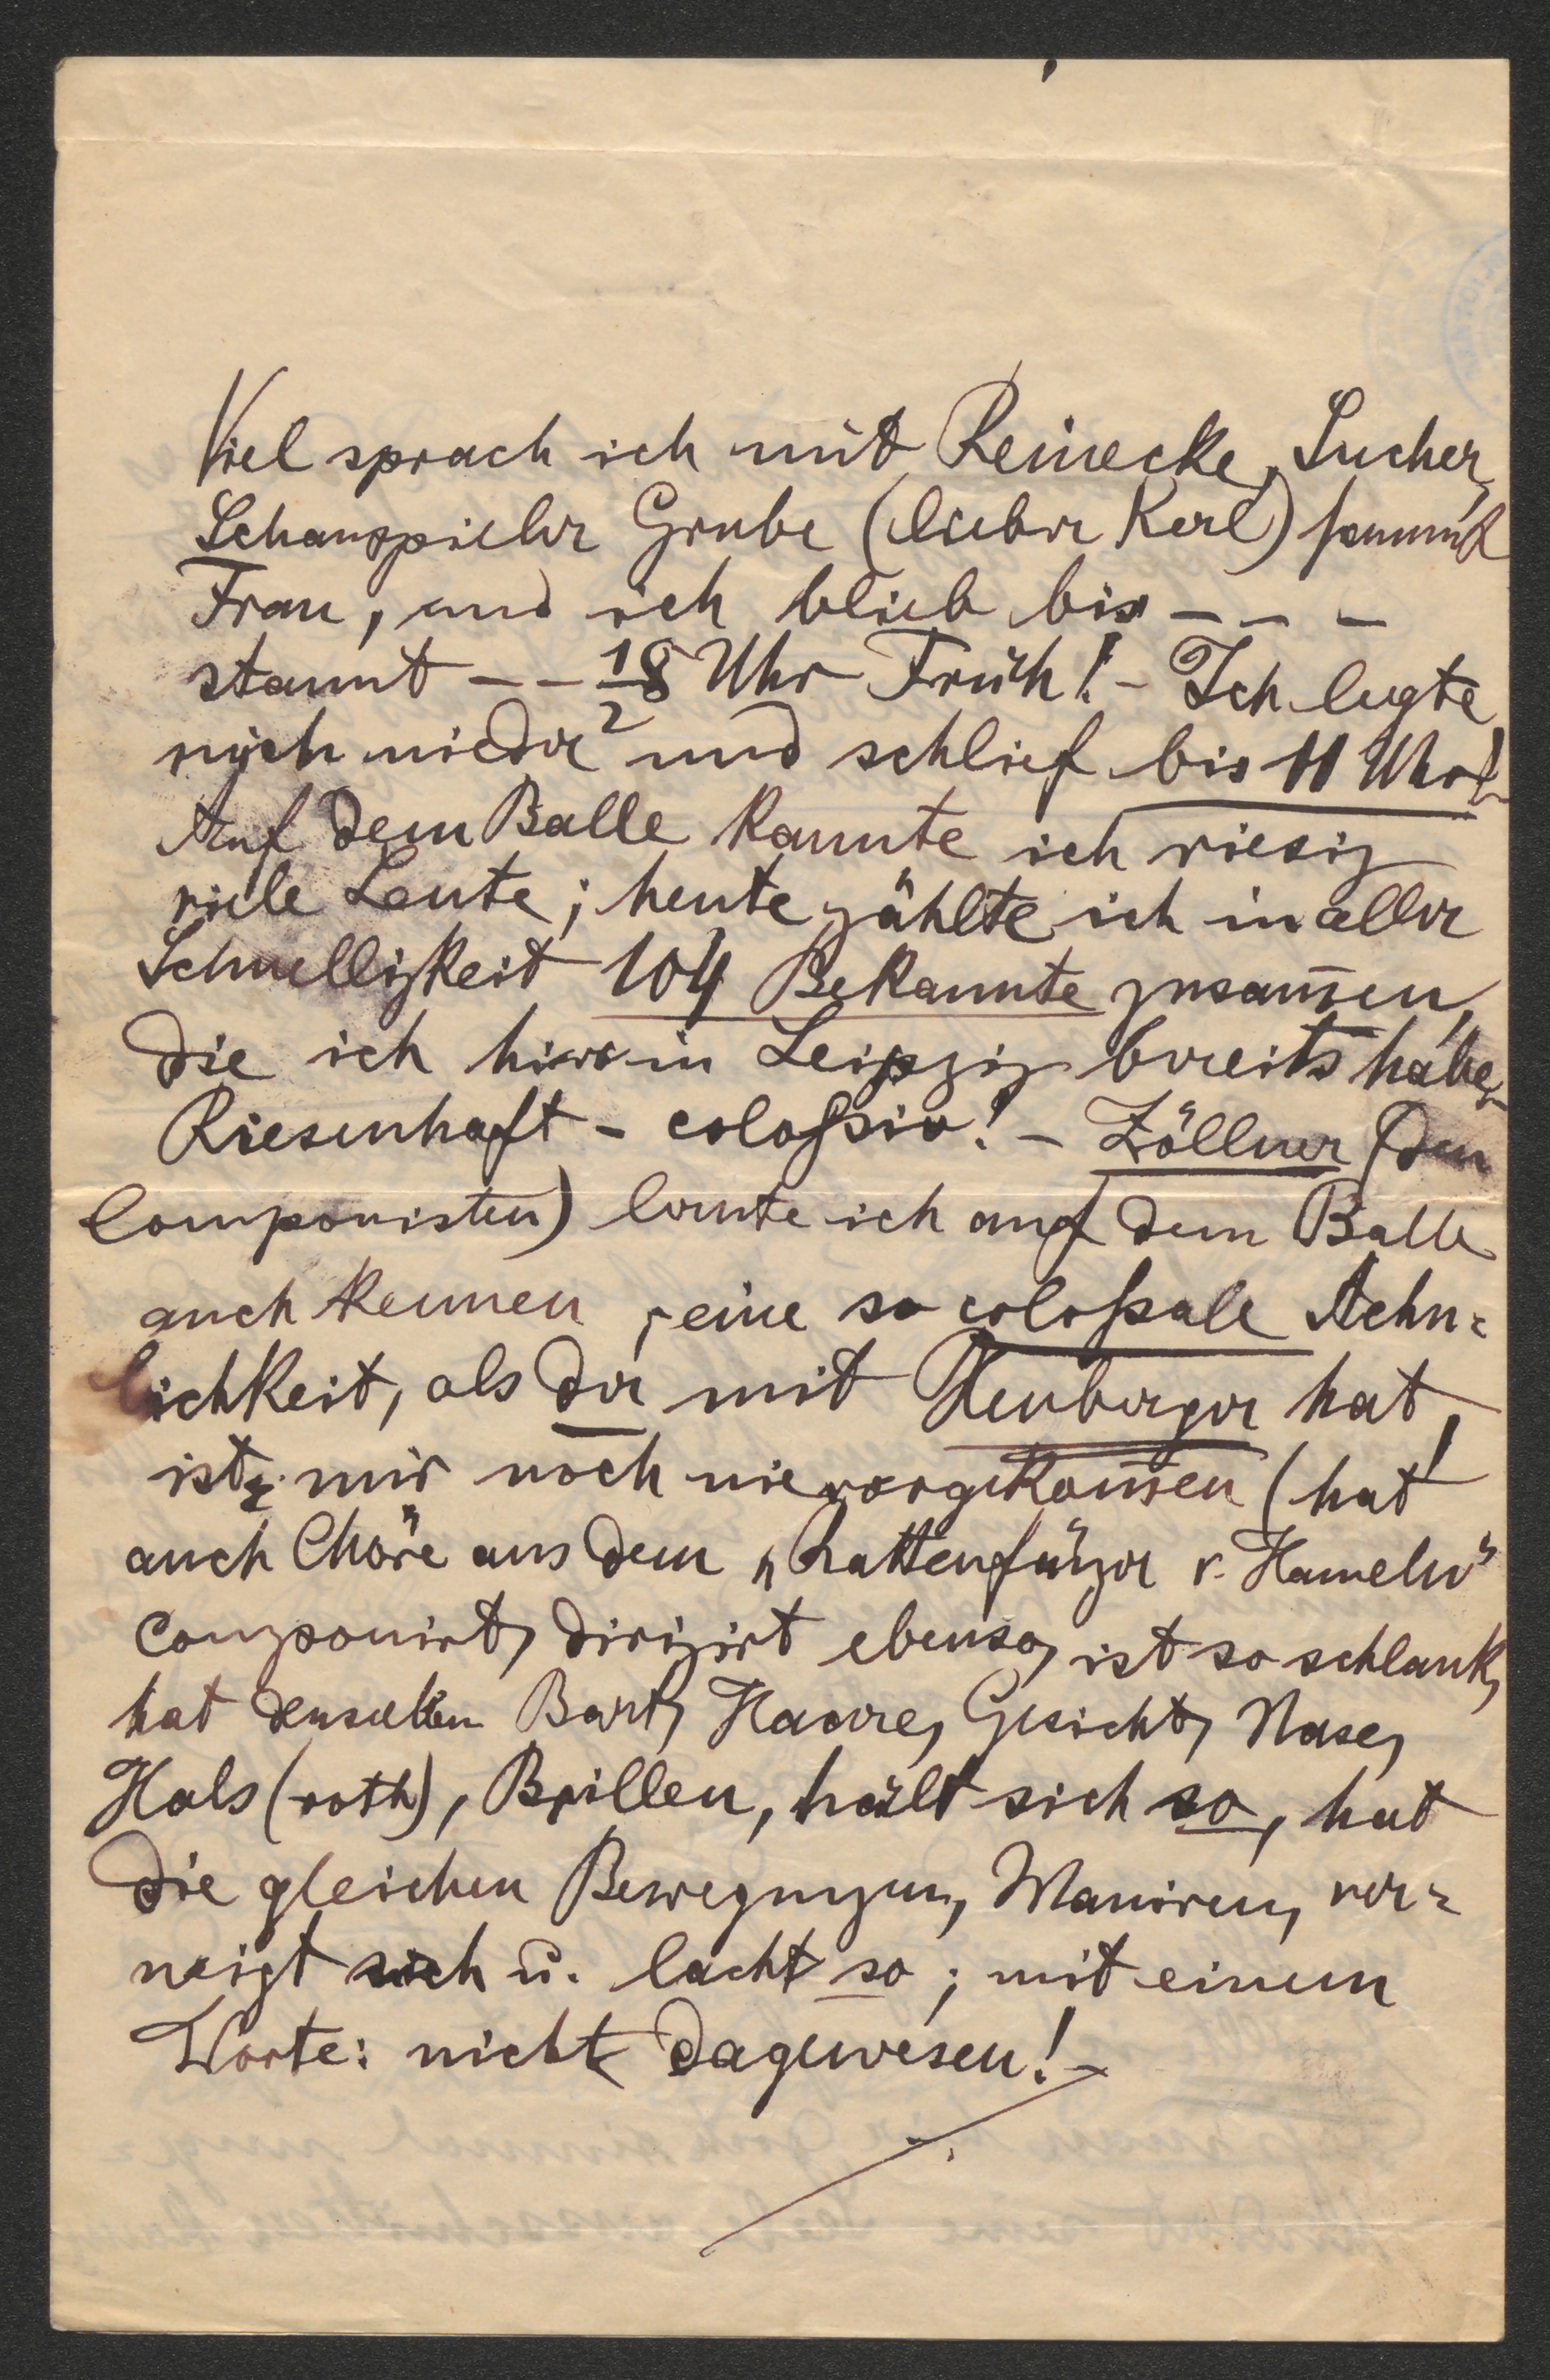 Viel sprach ich mit Reinecke, Sucher,
Schauspieler Grube (lieber Kerl) sammt
Frau, und ich blieb bis - - -
staunt - - ½8 Uhr Früh! - Ich legte
mich nieder und schlief bis 11 Uhr! -
Auf dem Balle kannte ich riesig
viele Leute; heute zählte ich in aller
Schnelligkeit 104 Bekannte zusam̅en,
die ich hier in Leipzig bereits habe. -
Riesenhaft - coloßiv! - Zöllner (den
Componisten) lernte ich auf dem Balle
auch kennen, eine so coloßale Aehn=
lichkeit, als der mit Heuberger hat,
ist mir noch nie vorgekom̅en (hat
auch Chöre aus dem „Rattenfänger v. Hameln“
componirt, dirigirt ebenso, ist so schlank,
hat denselben Bart, Haare, Gesicht, Nase,
Hals (roth), Brillen, hält sich so, hat
die gleichen Bewegungen, Maniren, ver=
neigt sich u. lacht so; mit einem
Worte: nicht dagewesen! -